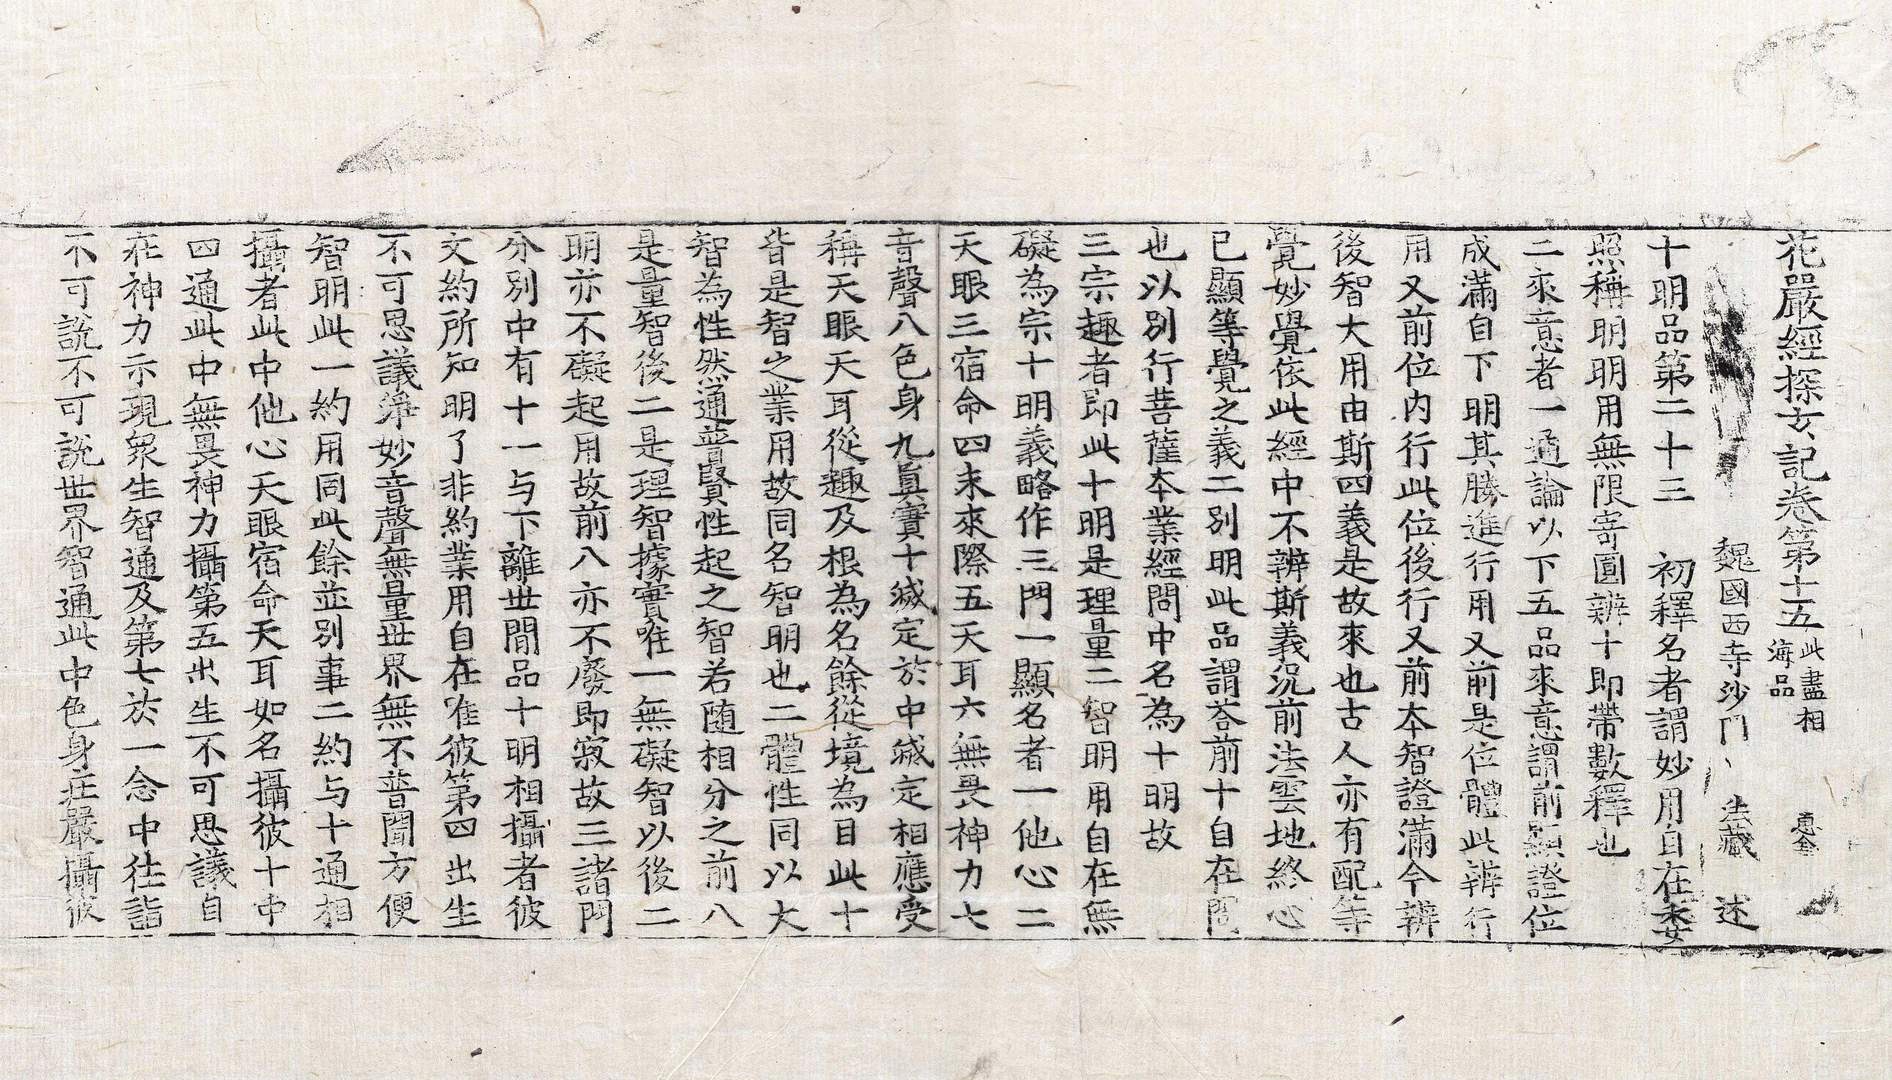 花嚴經探玄記卷第十五 此盡相海品
魏國西寺沙門 法藏 述
十明品第二十三 初釋名者謂妙用自在委
照稱明明用無限寄圓辨十即帶數釋也
二來意者一通論以下五品來意謂前顯證位
成滿自下明其勝進行用又前是位體此辨行
用又前位內行此位後行又前本智證滿今辨
後智大用由斯四義是故來也古人亦有配等
覺妙覺依此經中不辨斯義況前法雲地終心
已顯等覺之義二別明此品謂荅前十自在問
也以別行菩薩本業經問中名為十明故
三宗趣者即此十明是理量二智明用自在無
礙為宗十明義略作三門一顯名者一他心二
天眼三宿命四未來際五天耳六無畏神力七
音聲八色身九真實十滅定於中滅定相應受
稱天眼天耳從趣及根為名餘從境為目此十
皆是智之業用故同名智明也二體性同以大
智為性然通普賢性起之智若随相分之前八
是量智後二是理智據實唯一無礙智以後二
明亦不礙起用故前八亦不廢即寂故三諸門
分別中有十一与下離世間品十明相攝者彼
文約所知明了非約業用自在唯彼第四出生
不可思議淨妙音聲無量世界無不普聞方便
智明此一約用同此餘並別事二約与十通相
攝者此中他心天眼宿命天耳如名攝彼十中
四通此中無畏神力攝第五出生不可思議自
在神力示現衆生智通及第七於一念中往詣
不可說不可說世界智通此中色身莊嚴攝彼